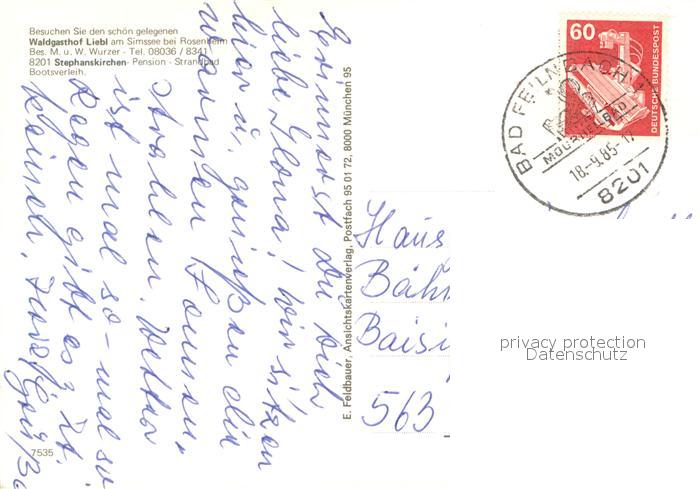 Besuchen Sie den schön gelegenen
Waldgasthof Liebl am Simssee bei Rosenheim
Bes. M. u. W. Wurzer - Tel. 08036 / 8341
8201 Stephanskirchen - Pension - Strandbad
Bootsverleih.
Erinnerst du dich
liebe Ilona! Wir sitzen
hier u. genießen die
warmen Sonnen-
strahlen. Wetter
ist mal so - mal so
Regen gibt es z. Zt.
keinen.
7535
E. Feldbauer, Ansichtskartenverlag, Postfach 95 01 72, 8000 München 95
60
DEUTSCHE BUNDESPOST
BAD FEILNBACH 1
MOORHEILBAD
18.-9.85-17
8201
Haus
563
privacy protection
Datenschutz